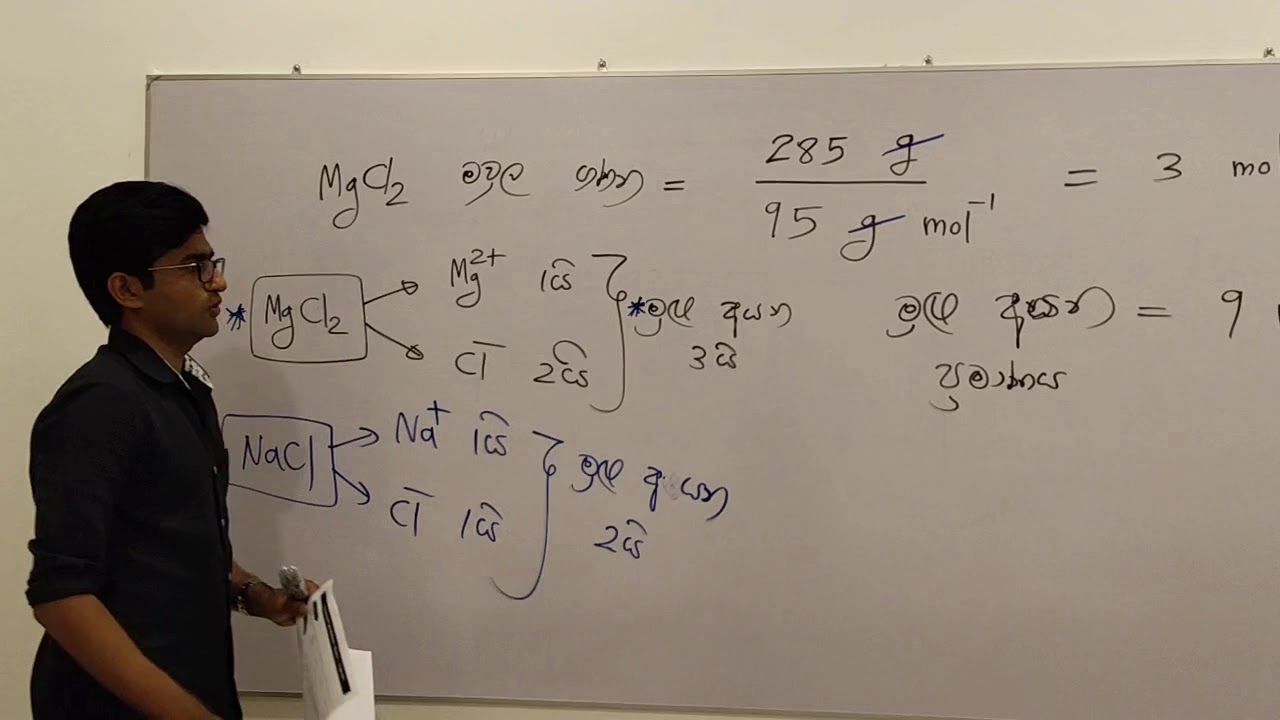 MgCl₂ මවුල ගණන = 285 g / 95 g mol⁻¹ = 3 mo
* MgCl₂ Mg²⁺ 1යි
Cl⁻ 2යි
* මුළු අයන
3යි
මුළු අයන = 9
ප්‍රමාණය
NaCl Na⁺ 1යි
Cl⁻ 1යි
මුළු අයන
2යි